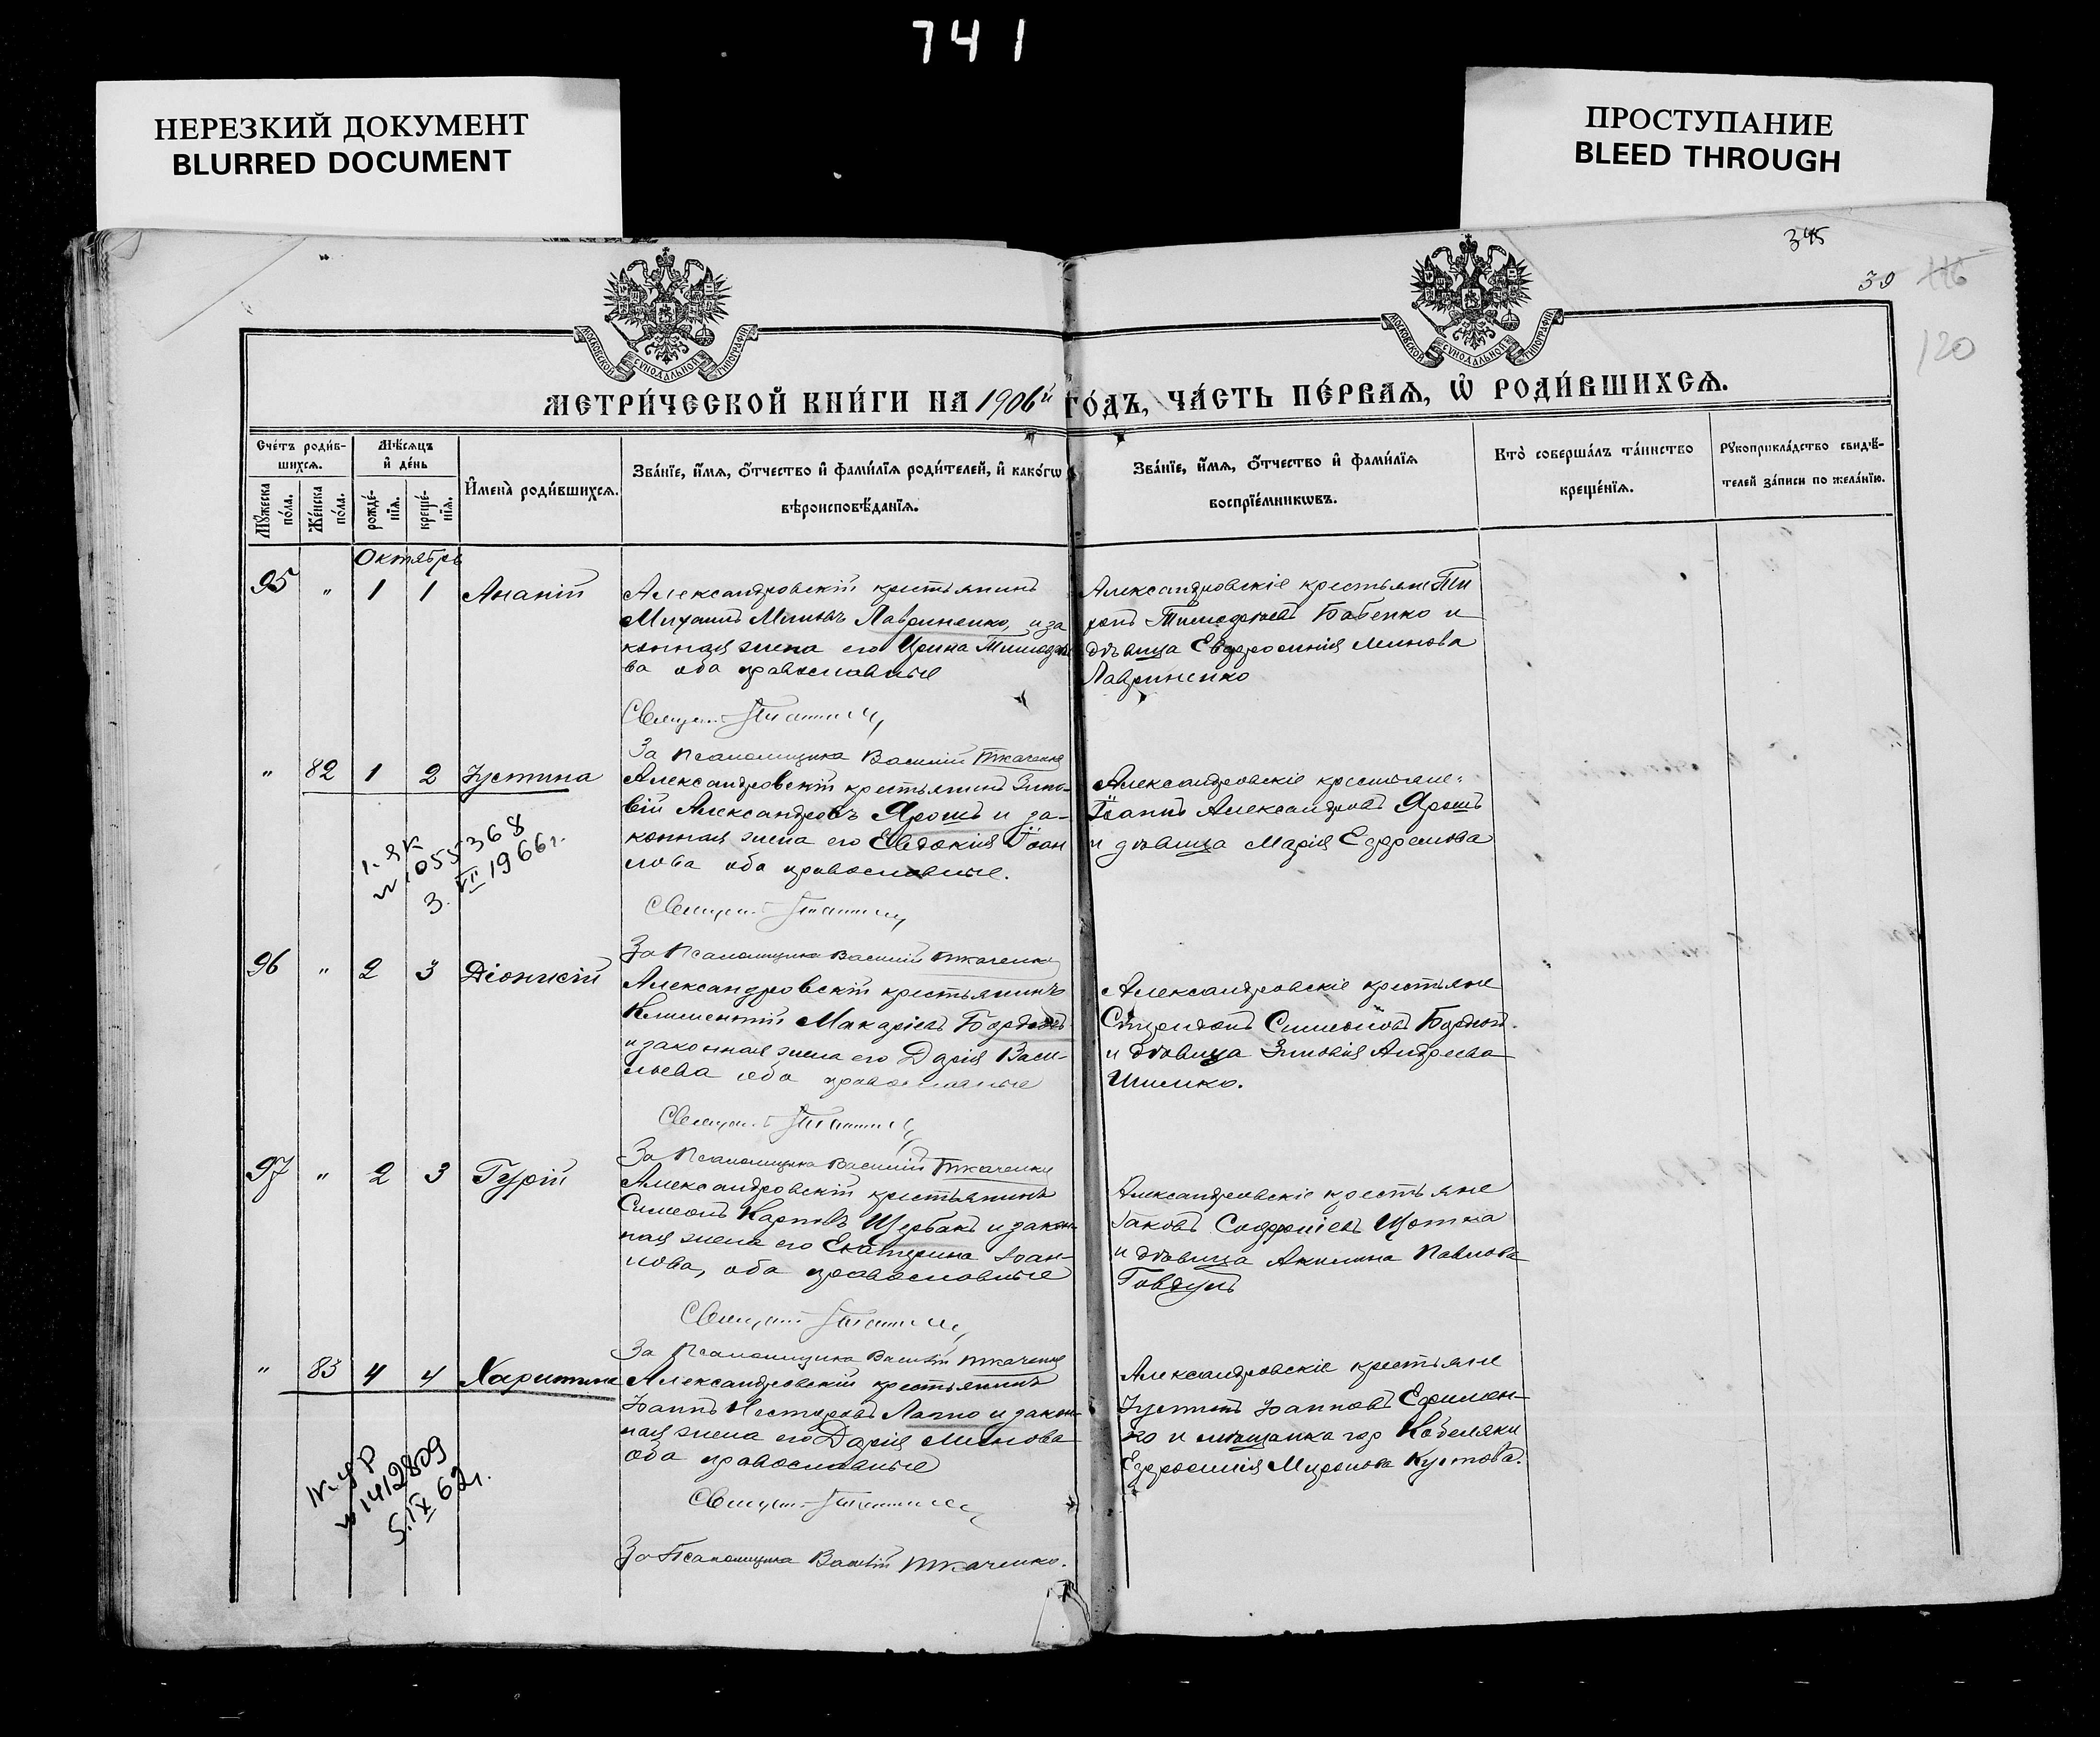 741
НЕРЕЗКИЙ ДОКУМЕНТ
BLURRED DOCUMENT
ПРОСТУПАНИЕ
BLEED THROUGH
345
39 116
120
МОСКОВСКОЙ СѴНОДАЛЬНОЙ ТИПОГРАФІИ
МОСКОВСКОЙ СѴНОДАЛЬНОЙ ТИПОГРАФІИ
МЕТРИ́ЧЕСКОЙ КНИ́ГИ НА 1906й ГО́ДЪ, ЧА́СТЬ ПЕ́РВАЯ, Ѡ҆ РОДИ́ВШИХСѦ.
Сче́тъ роди́в-
шихсѧ.
Мꙋ́жеска по́ла.
Же́нска по́ла.
Мѣ́сѧцъ
и҆ де́нь
рожде́-
нїѧ.
креще́-
нїѧ.
И҆мена̀ роди́вшихсѧ.
Зва́нїе, и҆́мѧ, ѻ҆́тчество и҆ фами́лїѧ роди́телей, и҆ како́гѡ
вѣроисповѣ́данїѧ.
Зва́нїе, и҆́мѧ, ѻ҆́тчество и҆ фами́лїѧ
воспрїе́мникѡвъ.
Кто̀ соверша́лъ та́инство
креще́нїѧ.
Рꙋкоприкла́дство свидѣ́-
телей за́писи по жела́нїю.
Октябрь
95 " 1 1 Ананій
Александровскій крестьянинъ
Михаилъ Лавриненко, и за
конная жена его Ирина Тимофее
ва оба православные
Александровскіе крестьяне Ти
хонъ Тимофеевъ Бабенко и
дѣвица Евфросинія Минова
Лавриненко
Священ.
За Псаломщика Василій Ткаченко
" 82 1 2 Іустина
Александровскій крестьянинъ Зино-
вій Александровъ Ярошъ и за-
конная жена его Евдокія Іоан
нова оба православные.
Александровскіе крестьяне:
Іоаннъ Александровъ Ярошъ
и дѣвица Марія Ефремова
055368
3.VII 1966г.
Священ.
За Псаломщика Василій Ткаченко
96 " 2 3 Діонисій
Александровскій крестьянинъ
Климентій Макаріевъ
и законная жена его Дарія Васи-
льева оба православные
Александровскіе крестьяне
Спиридонъ Симеоновъ
и дѣвица Зиновія Андреева
Шимко.
Священ.
За Псаломщика Василій Ткаченко
97 " 2 3 Гурій
Александровскій крестьянинъ
Симеонъ Карповъ Щербакъ и закон-
ная жена его Екатерина Іоан-
нова, оба православные
Александровскіе крестьяне
Іаковъ Софроніевъ
и дѣвица Акилина Павлова
Священ.
За Псаломщика Василій Ткаченко
" 83 4 4 Харитина
Александровскій крестьянинъ
Іоаннъ Несторовъ и закон-
ная жена его Дарія Минова
оба православные
Александровскіе крестьяне
Іустинъ Іоанновъ Ефимен-
ко и мѣщанка гор Кобеляки
Евфросинія Миронова Кустова.
1412809
5.IX 62г.
Священ.
За Псаломщика Василій Ткаченко.